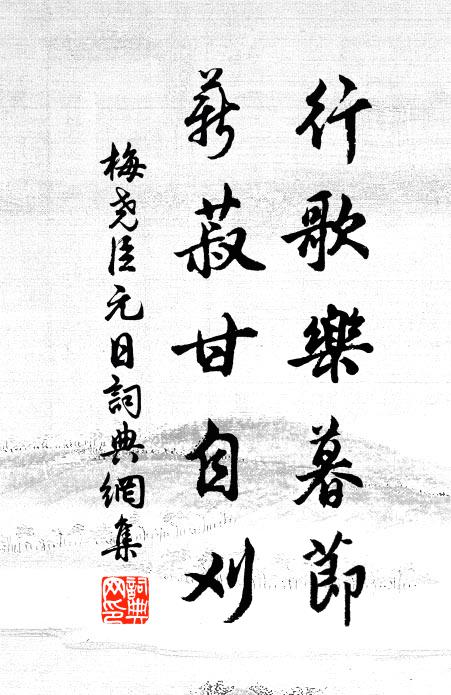 行歌樂暮節
薪菽甘自刈
梅堯臣元日詞典網集
詞典网印